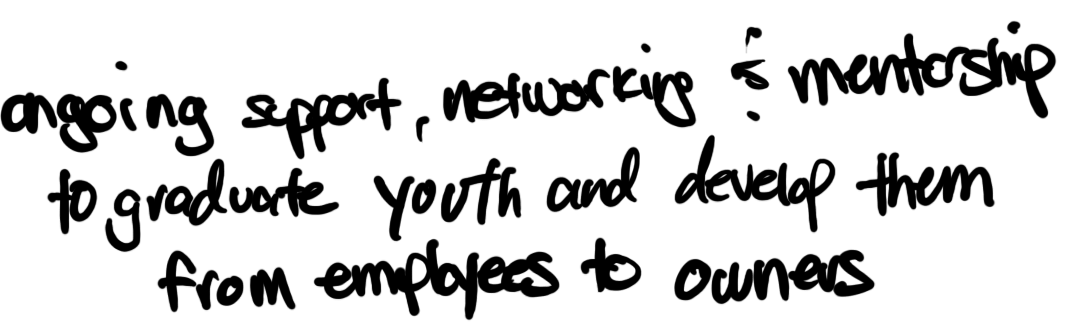 ongoing support, networking & mentorship
to graduate youth and develop them
from employees to owners